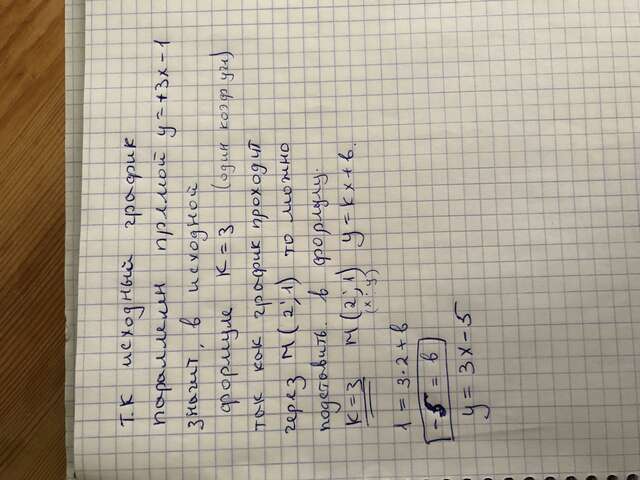 Т.К исходный график
параллелен прямой y=+3x-1
значит, в исходной
формуле K=3 (один коэф.уги)
так как график проходит
через M(2;1) то можно
подставить в формулу.
K=3 M(2;1) y=kx+b.
(x;y)
1=3·2+b
-5=b
y=3x-5